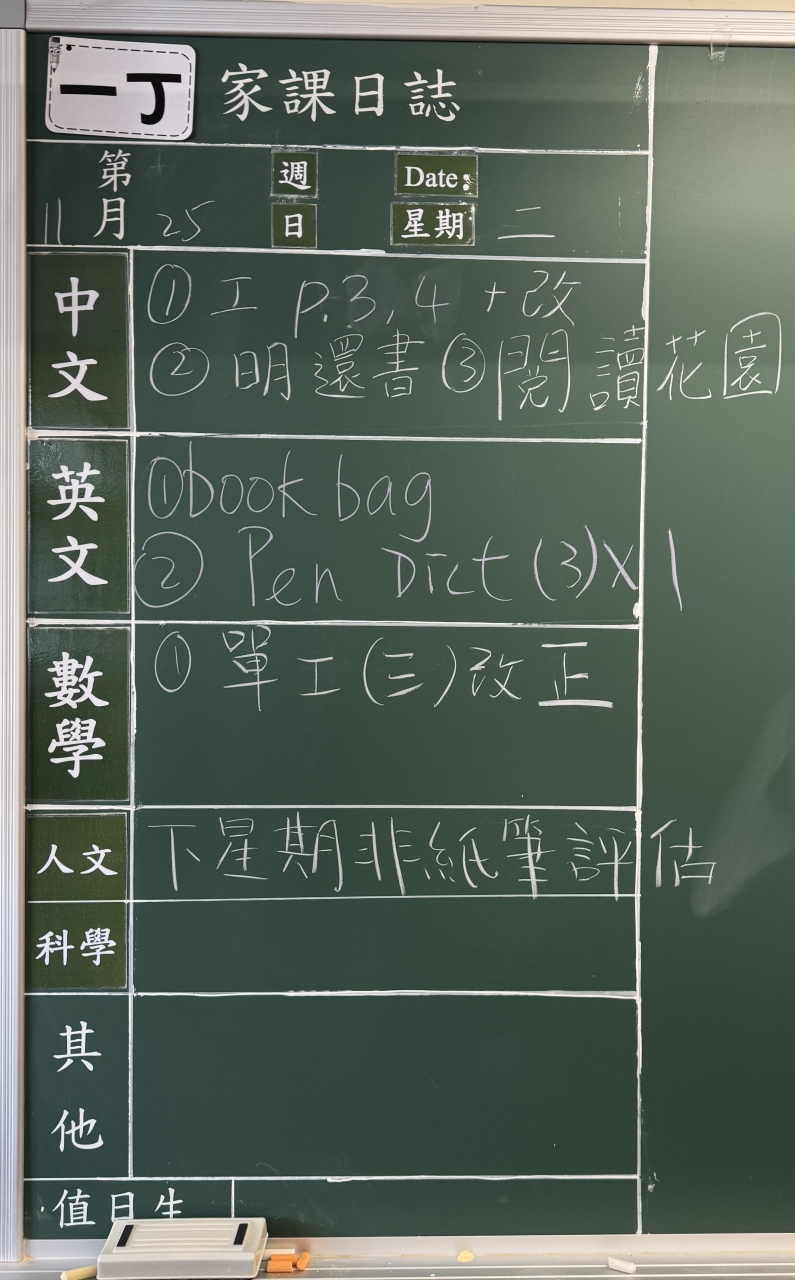 一丁 家課日誌
第 週 Date:
11 月 25 日 星期 二
中文
① 工 p.3,4 + 改
② 明還書 ③ 閱讀花園
英文
① book bag
② Pen Dict (3) x 1
數學
① 單工(三)改正
人文
下星期非紙筆評估
科學
其他
值日生